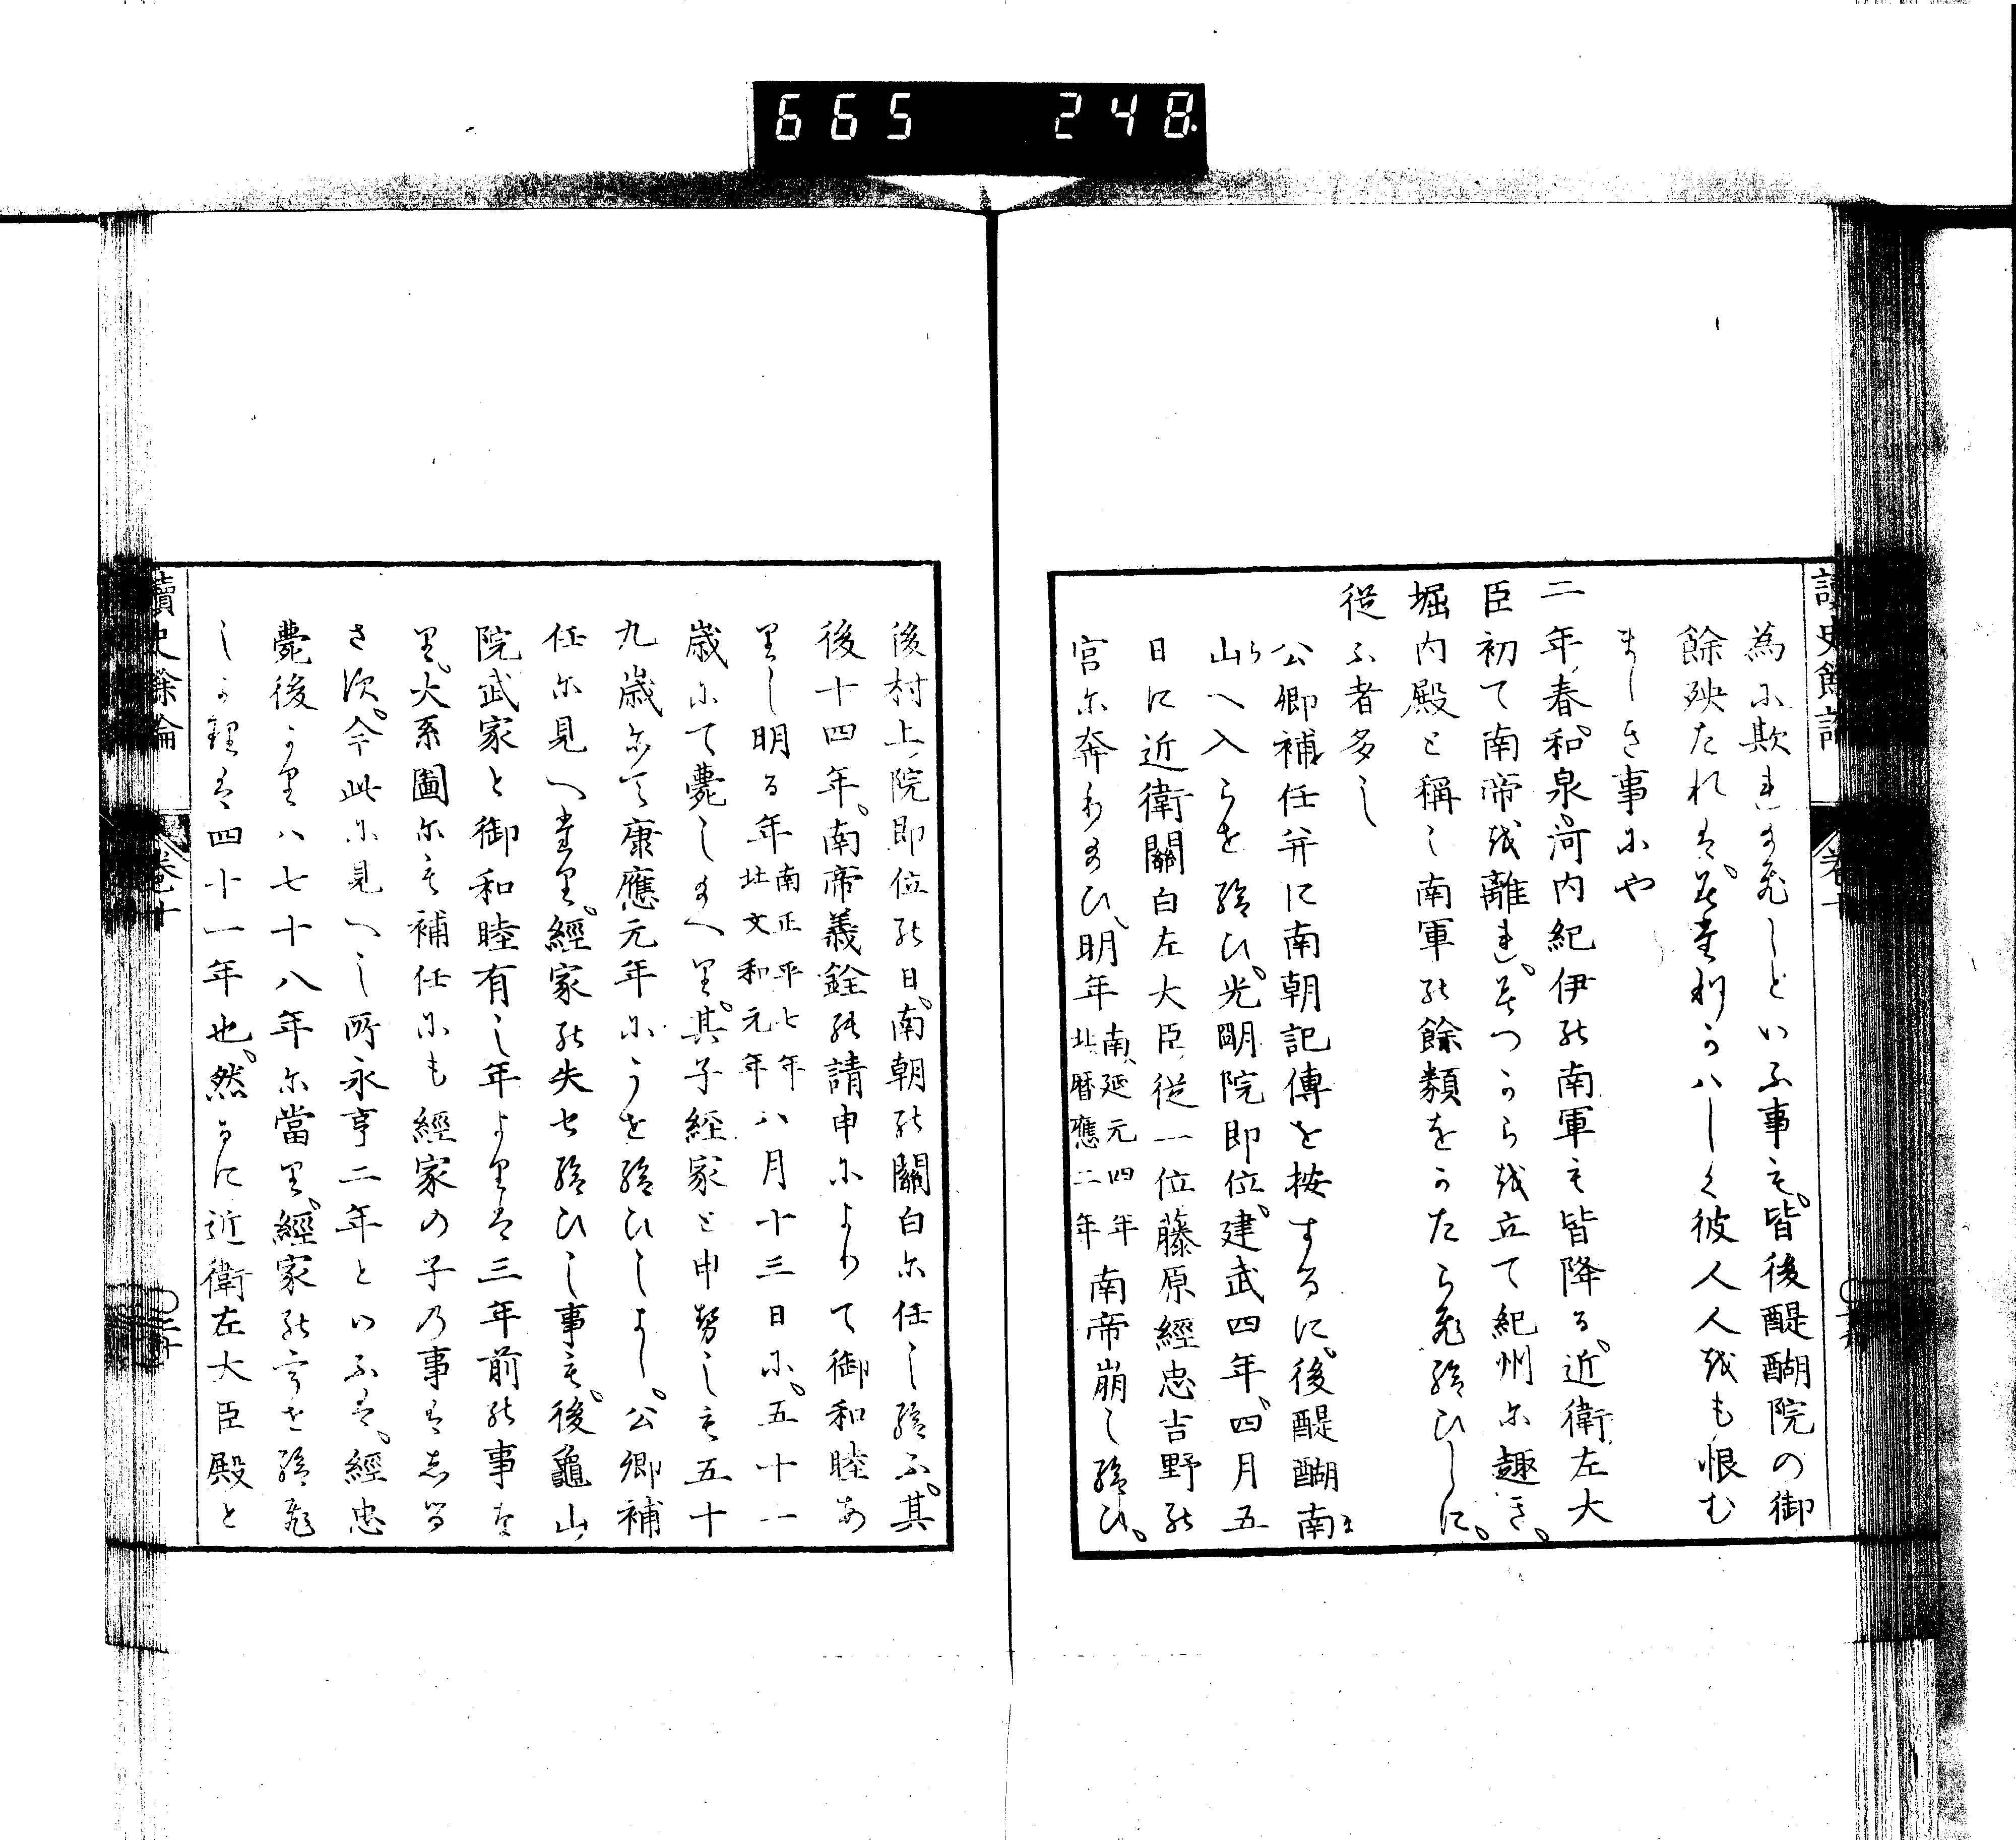 665 248.
讀史餘論 卷十
為に欺れまいらせしといふ事も、皆後醍醐院の御
餘殃たれは、
彼人人を も恨む
ましき事にや
二年、春、和泉河内紀伊の南軍も皆降る、近衛左大
臣初て南帝を離れ、みつから を立て紀州に趣き、
堀内殿と稱し南軍の餘類をかたらひ給ひしに、
從ふ者多し
公卿補任并に南朝記傳を按するに、後醍醐南
山へ入らせ給ひ、光明院即位、建武四年、四月五
日に近衛關白左大臣從一位藤原經忠吉野の
宮に奔りまひ、明年 南、延元四年 北、暦應二年 南帝崩し給ひ、
後村上院即位の日、南朝の關白に任し給ふ、其
後十四年、南帝義銓の請申によりて御和睦あ
りし明る年 南正平七年 北文和元年 八月十三日に、五十一
歳にて薨しまへり、其子經家と申 しも五十
九歳にて康應元年にうせ給ひしよし、公卿補
任に見へたり、經家の失せ給ひし事も、後龜山
院武家と御和睦有し年よりは三年前の事な
り、大系圖にも補任にも經家の子の事はしる
さす、今此に見へし所永享二年といふは、經忠
薨後より八七十八年に當り、經家の うせ給ひ
しより は四十一年也、然るに近衛左大臣殿と
讀史餘論 卷十